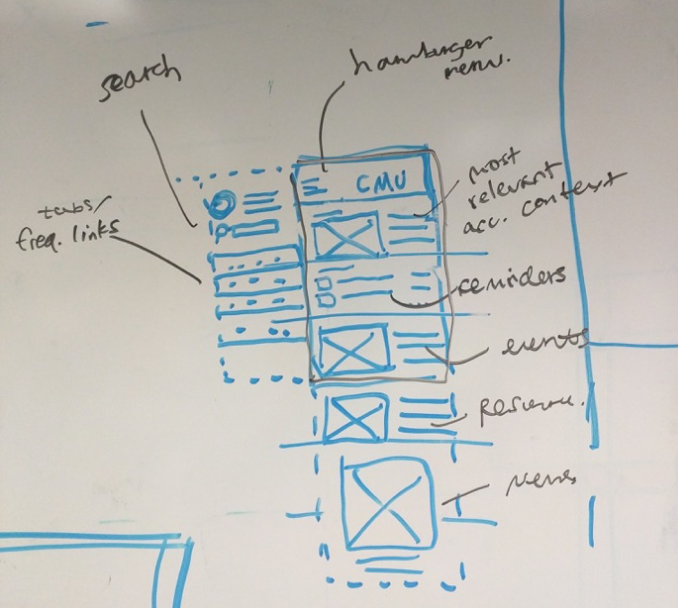 search
hamburger
menu.
tabs/
freq. links
CMU
most
relevant
acc. context
reminders
events
news